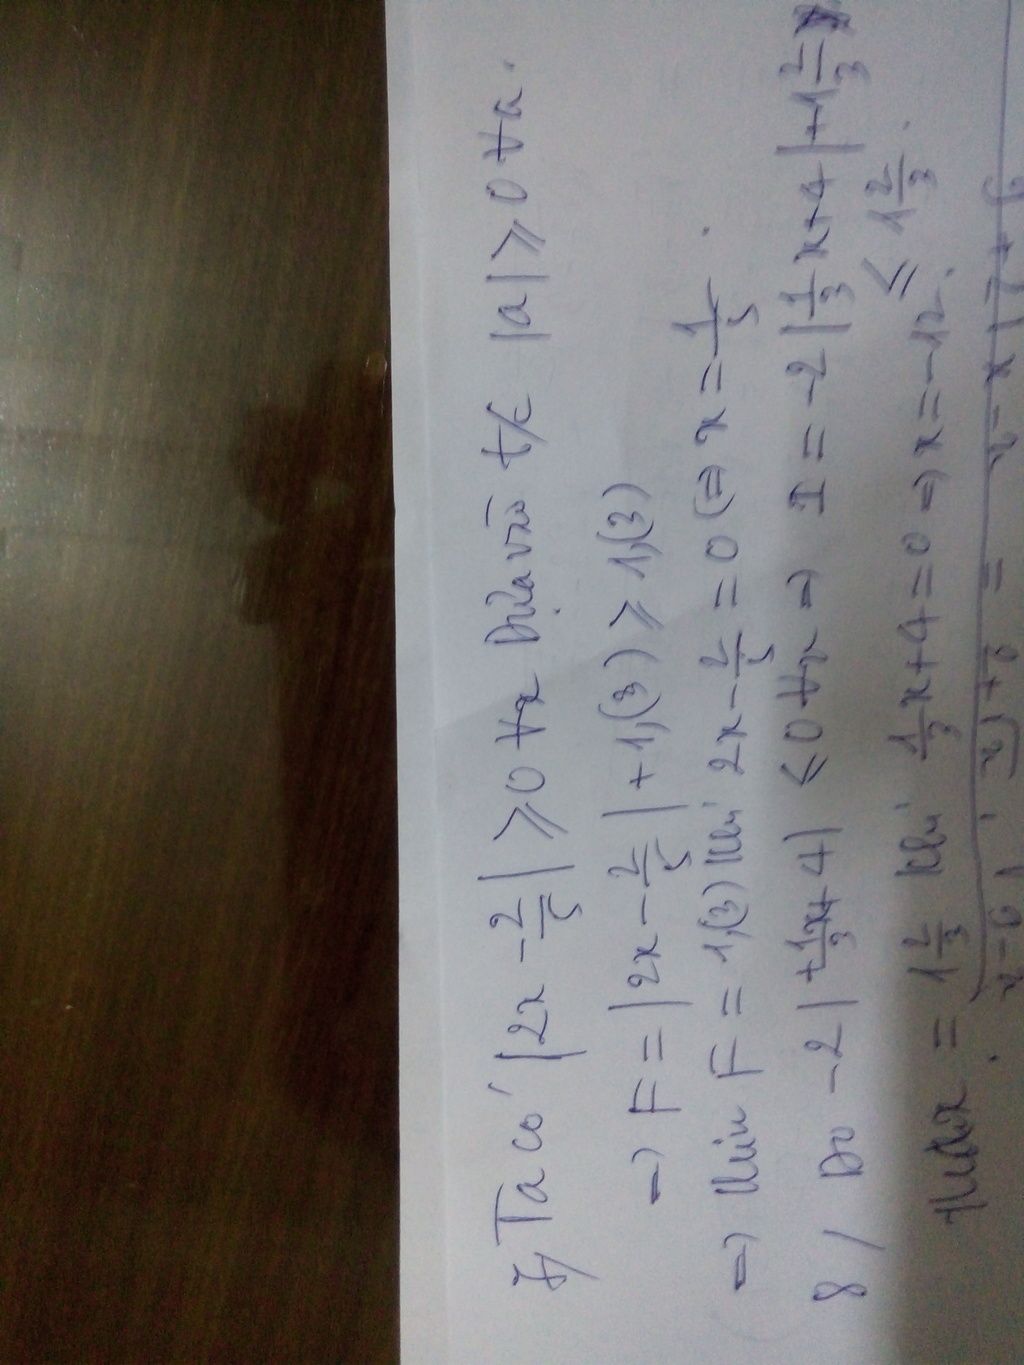 7, Ta có |2x - 2/5| ≥ 0 ∀x Dựa vào t/c |a| ≥ 0 ∀a.
=> F = |2x - 2/5| + 1,(3) ≥ 1,(3)
=> Min F = 1,(3) khi 2x - 2/5 = 0 (=> x = 1/5.
8/ Do -2|+1/3x+4| ≤ 0 ∀x => I = -2|1/3x+4| + 1 2/3
≤ 1 2/3.
Max = 1 2/3 khi 1/3x+4 = 0 => x = -12.